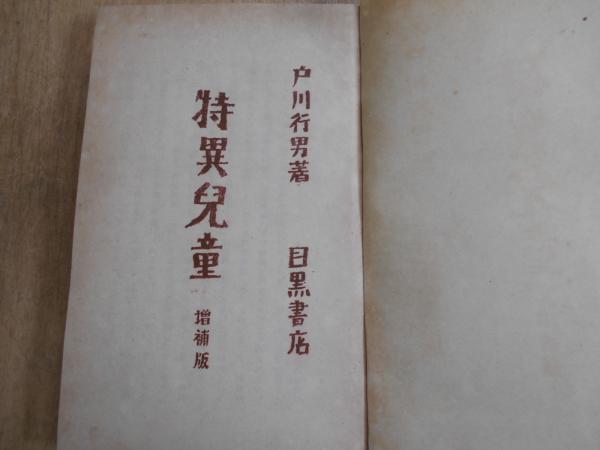 戸川行男著
目黒書店
特異兒童
增補版